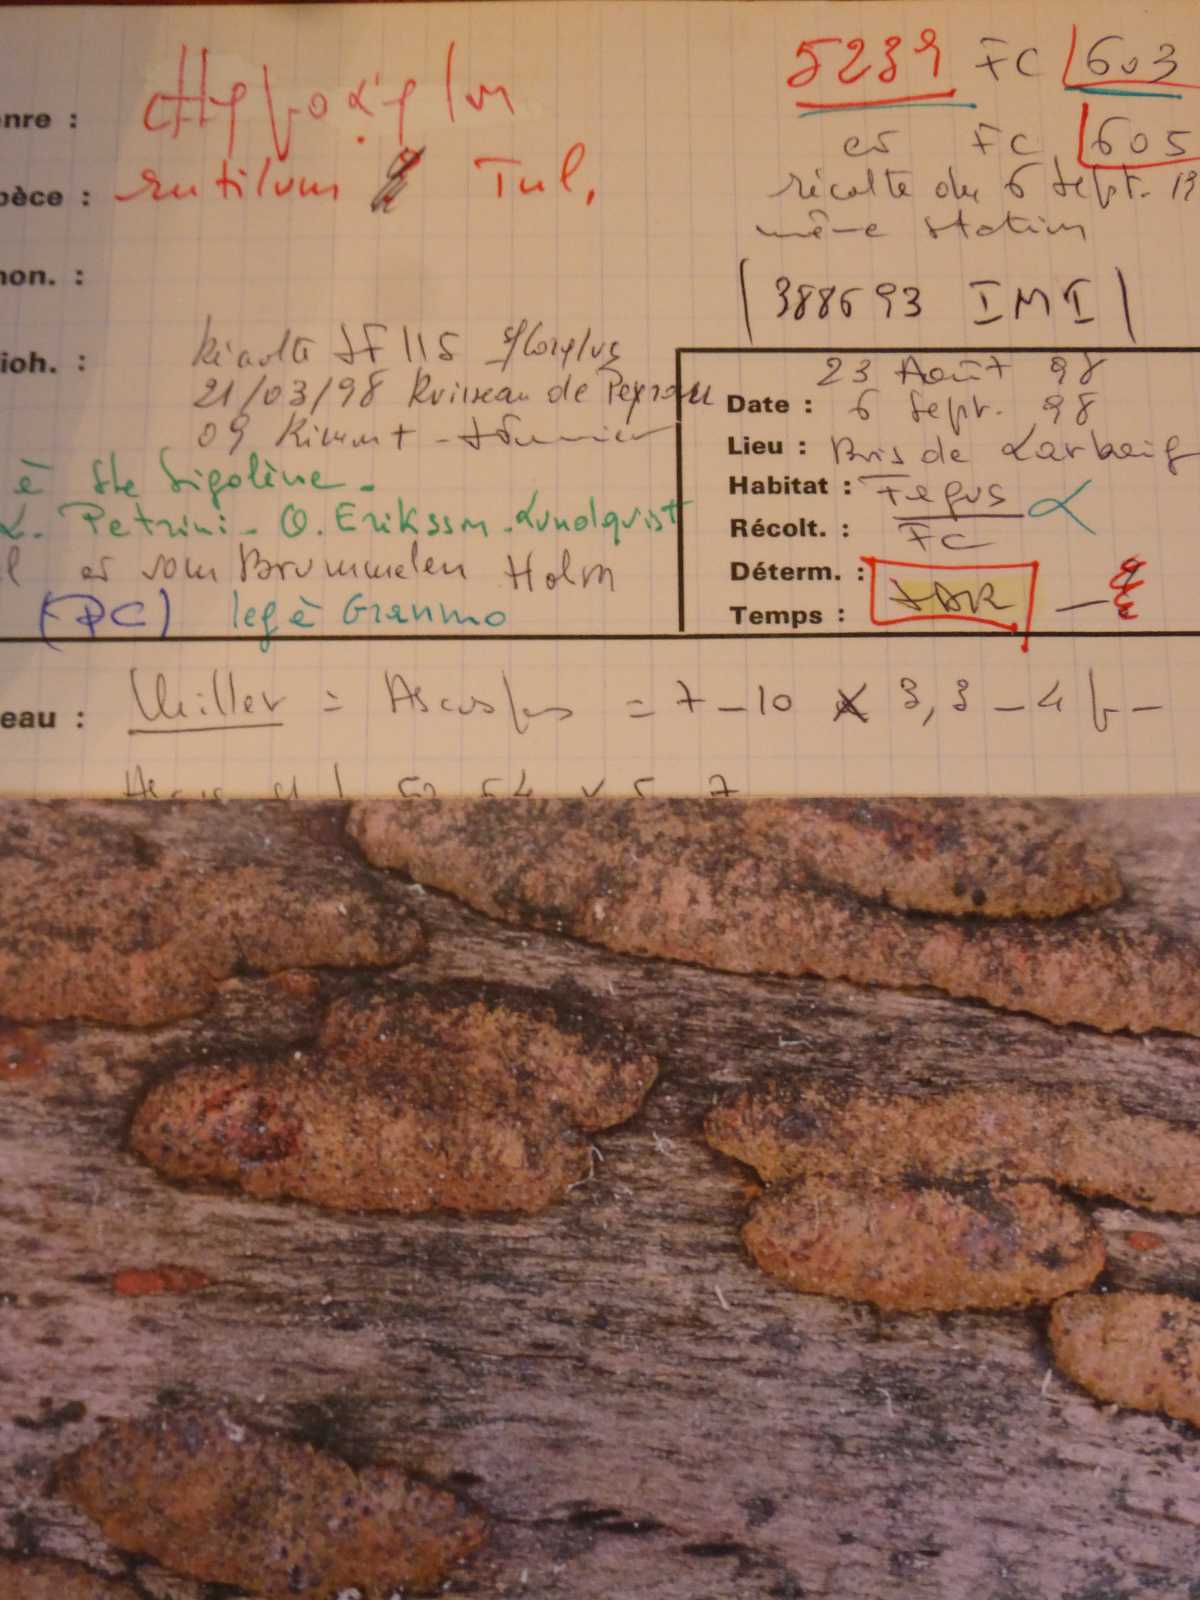 enre : Hypoxylon
5239 FC 603
et FC 605
pèce : rutilum Tul.
récolte du 6 Sept. 19
même station
non. :
388693 IMI
ioh. : Récolte JF 115 s/Corylus
21/03/98 Ruisseau de Peyrau
09 Rimont
23 Août 98
Date : 6 Sept. 98
Lieu : Bois de Larbaig
Habitat : Fagus
Récolt. : FC
Déterm. :
Temps : JDR
è Ste Sigolène -
L. Petrini - O. Eriksson - Lundqvist
l et von Brummelen Holm
(PC) leg è Granmo
eau : Miller = Ascospores = 7-10 x 3,3-4 µ -